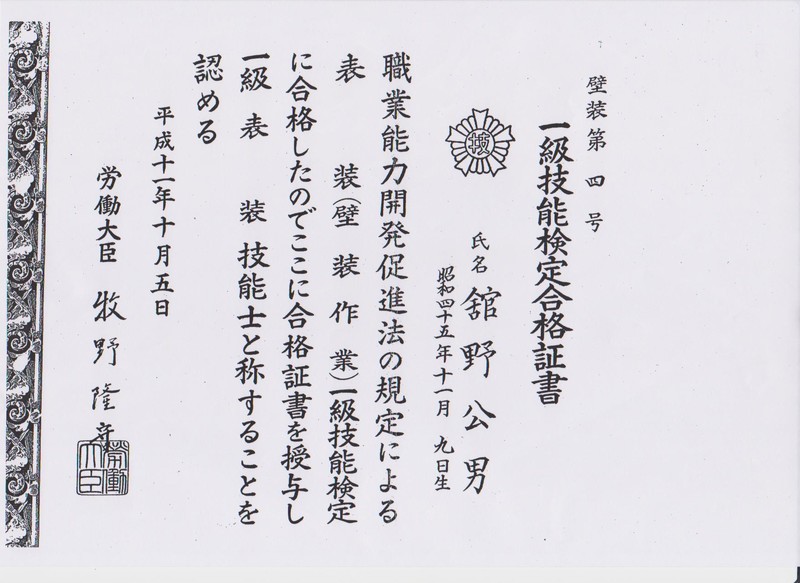 壁装第四号
一級技能検定合格証書
技
氏名 舘野公男
昭和四十五年十一月 九日生
職業能力開発促進法の規定による
表装(壁装作業)一級技能検定
に合格したのでここに合格証書を授与し
一級表装技能士と称することを
認める
平成十一年十月五日
労働大臣 牧野隆守
労働大臣